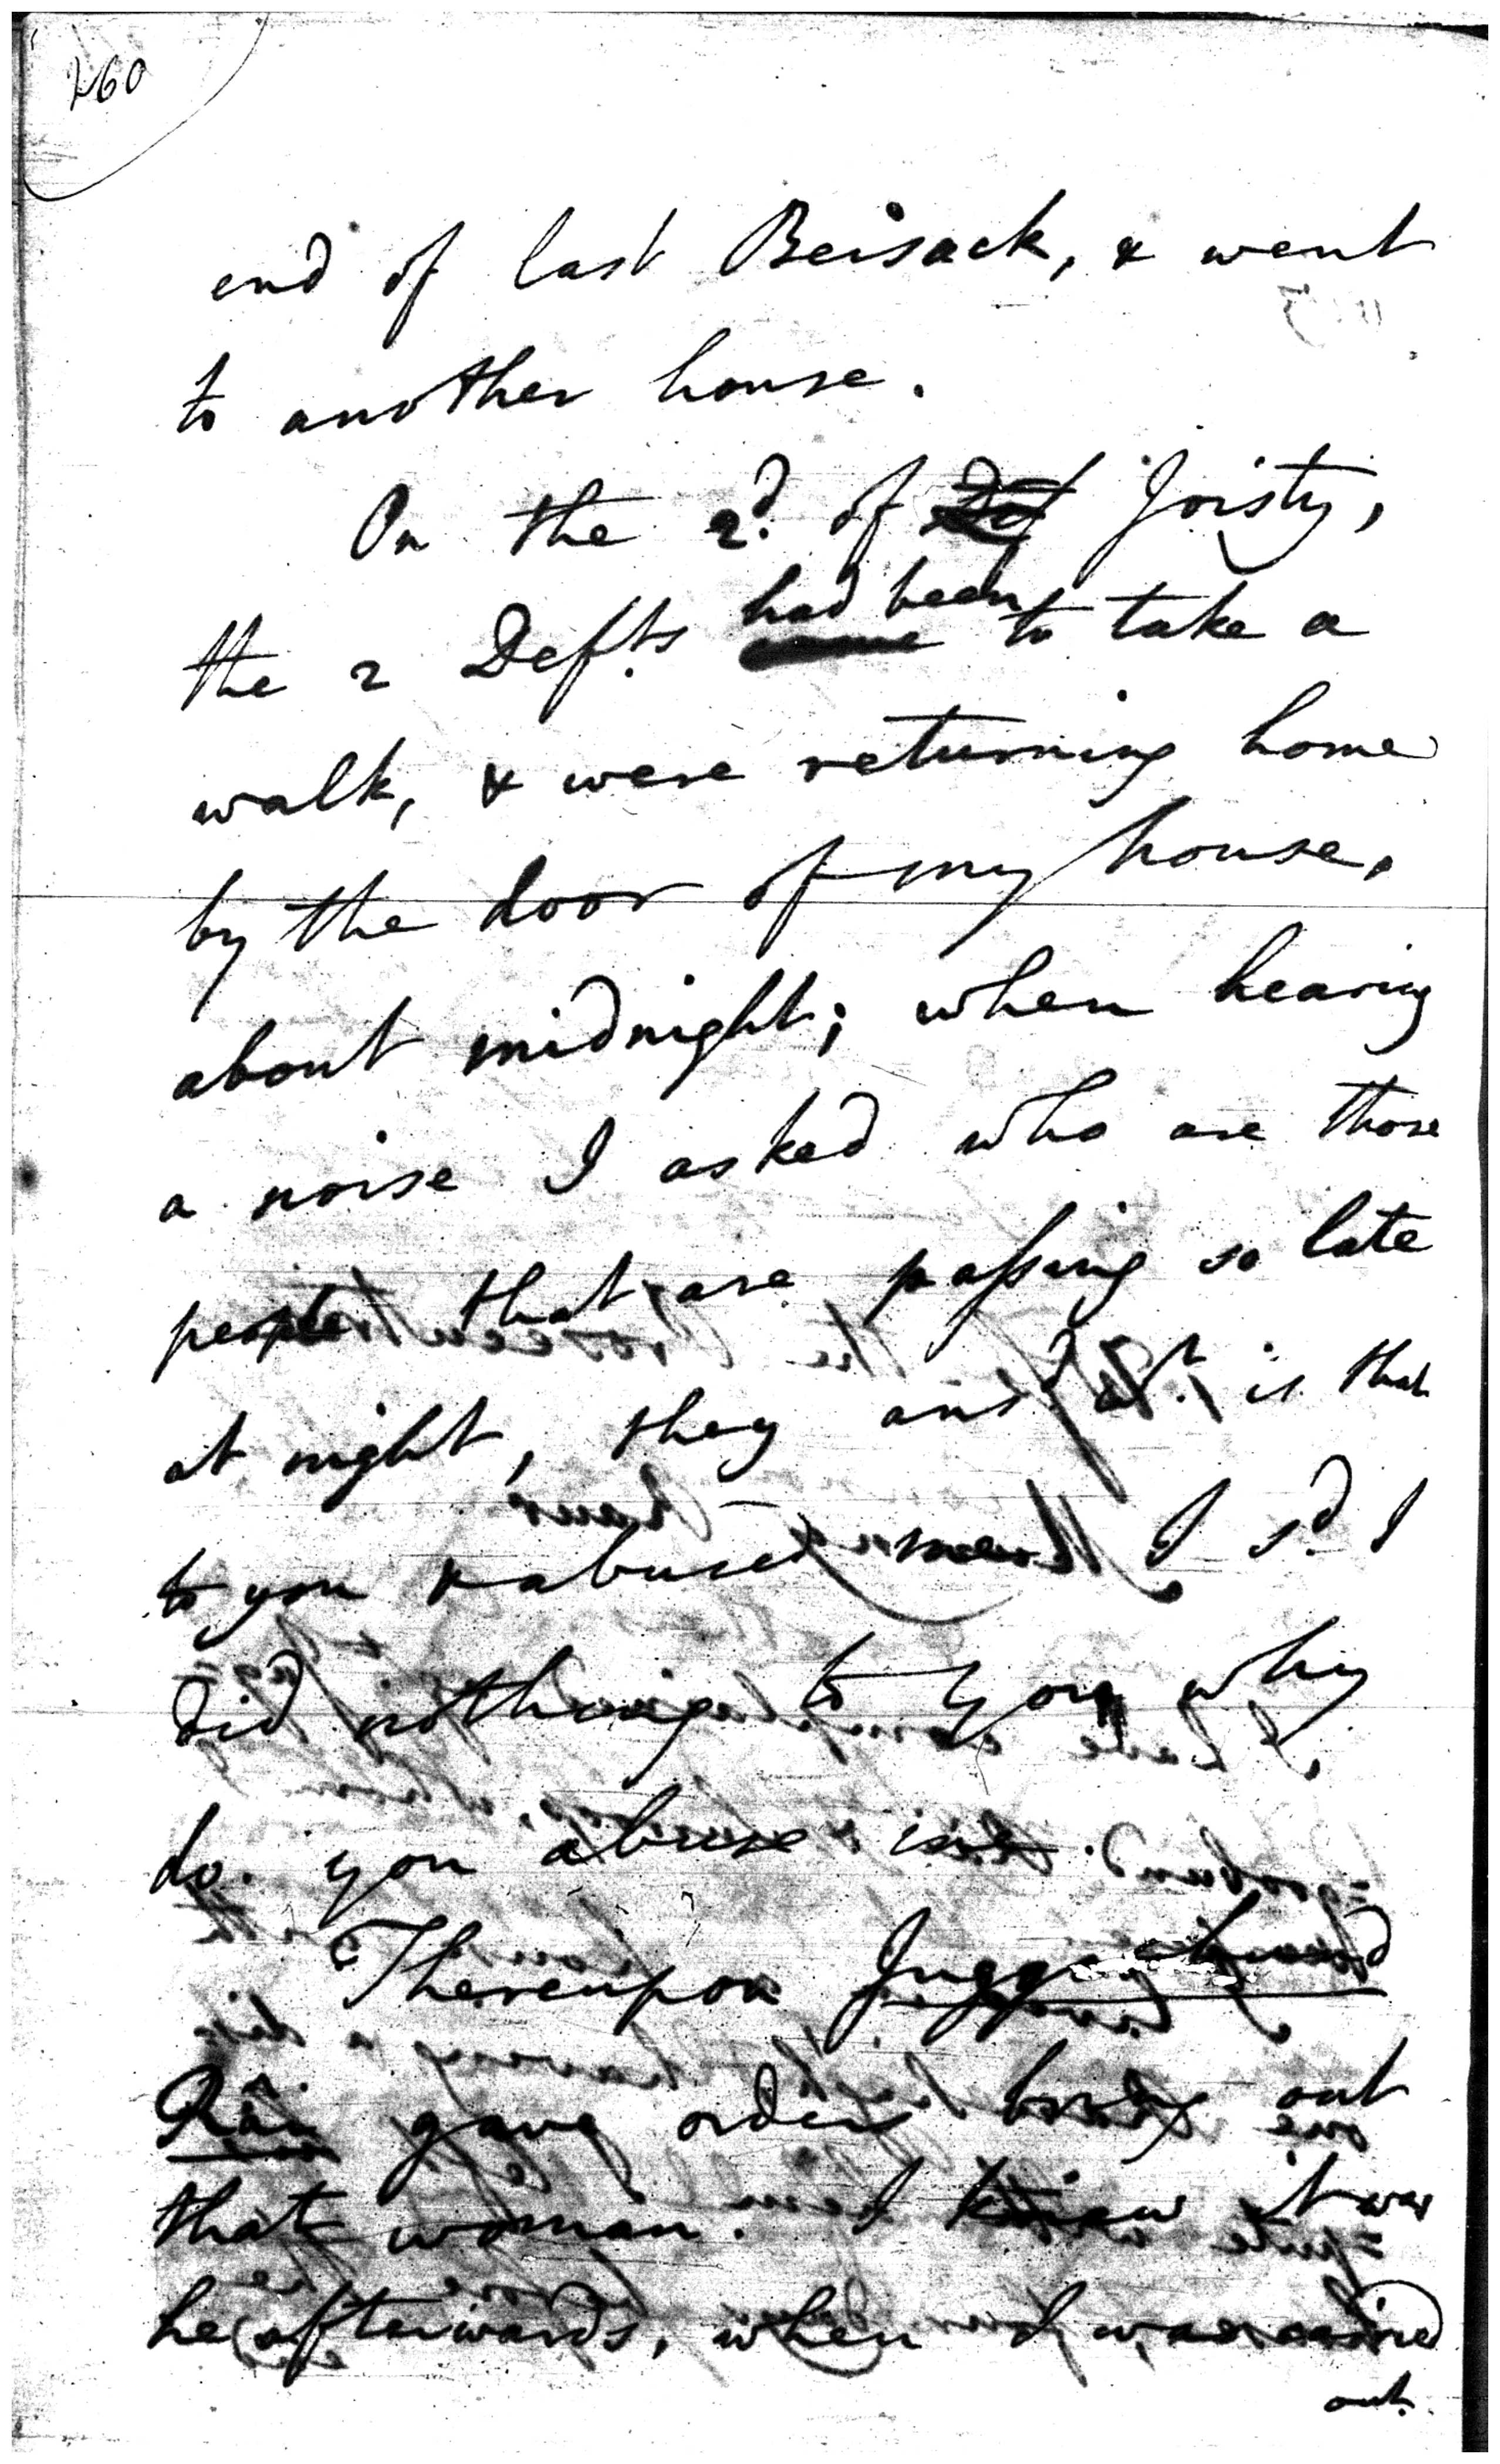 260
end of last Beisack, & went
to another house.
On the 2d. of Joisty,
had been
the 2 Defts. to take a
walk, & were returning home
by the door of my house,
about midnight; when hearing
a noise I asked who are those
people that are passing so late
at night, they ansd. wt. is that
to you & abused me. I sd. I
did nothing to you why
do you abuse me.
Thereupon Juggo
Rai gave orders bring out
that woman. I knew it was
he afterwards, when I was carried
out.